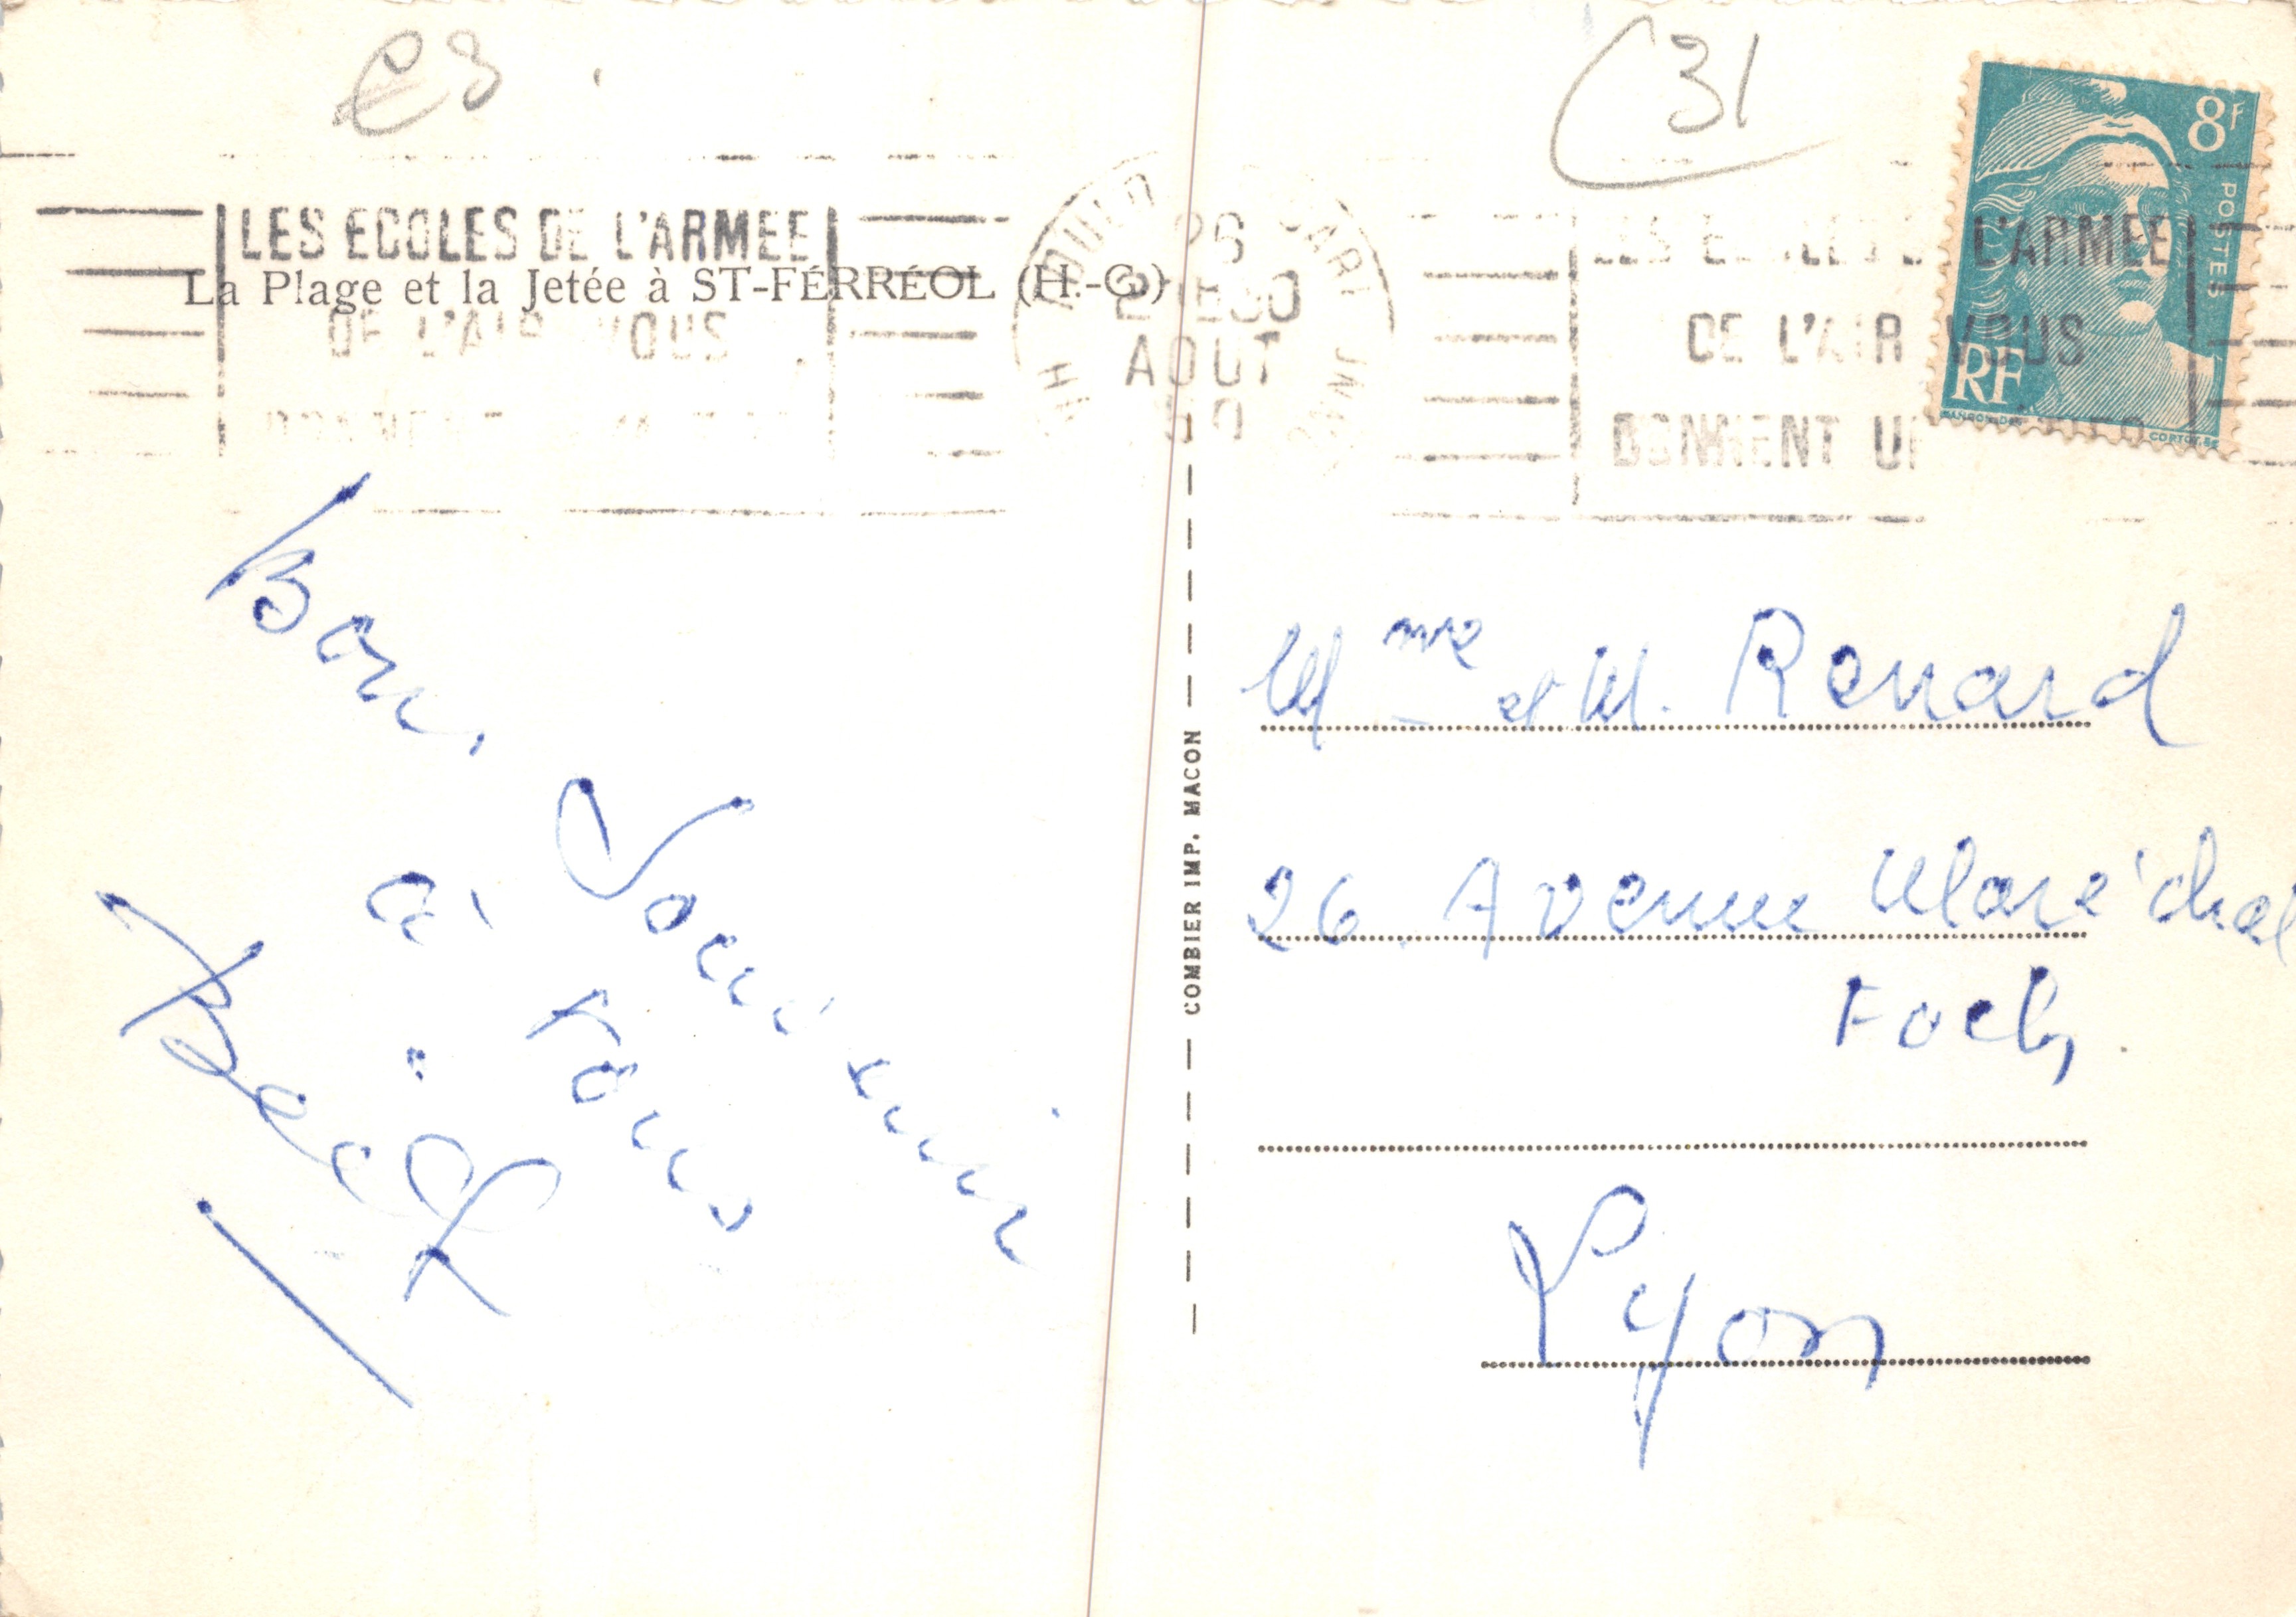 31
LES ECOLES DE L'ARMEE
DE L'AIR VOUS
La Plage et la Jetée à ST-FÉRRÉOL (H.-G.)
26
AOUT
50
L'ARMEE
DE L'AIR VOUS
DONNENT
8F
POSTES
RF
Bon Souvenir
à tous
COMBIER IMP. MACON
Mme et M. Renard
26. Avenue Maréchal
Foch
Lyon